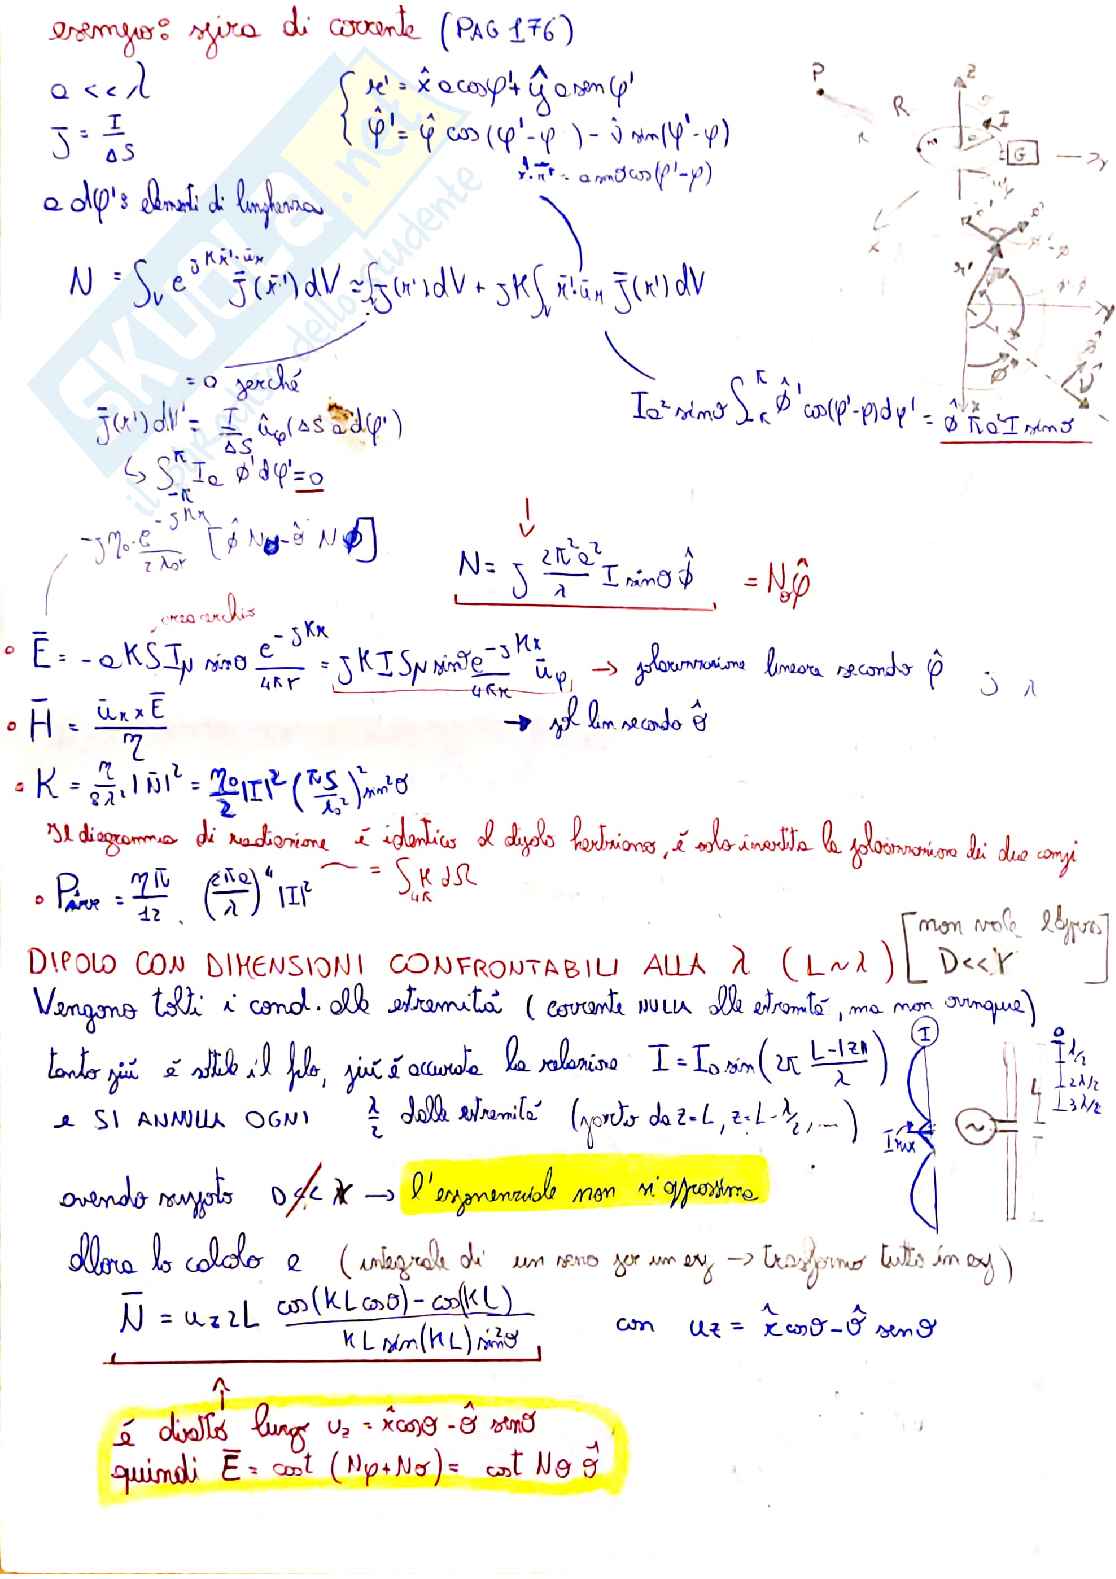 esempio: spira di corrente (PAG 176)
a << λ
J̄ = I/ΔS
{ r' = x̂ a cosφ' + ŷ a sen φ'
φ̂' = φ̂ cos(φ'-φ) - r̂ sin(φ'-φ)
r̂·r̄' = a sinθ cos(φ'-φ)
a dφ': elementi di lunghezza
P
R
r
z
I
G
y
x
N = ∫_V e^{jK r̄'·ū_r} J̄(r̄') dV ≃ ∫_V J(r') dV + jK ∫_V r̄'·ū_r J̄(r') dV
= 0 perché
J̄(r') dV' = I/ΔS û_φ (ΔS a dφ')
↳ ∫_{-π}^{π} I a φ̂' dφ' = 0
I a² sinθ ∫_{-π}^{π} φ̂' cos(φ'-φ) dφ' = φ̂ π a² I sinθ
-jη₀ e^{-jKr}/(2λ₀r) [φ̂ Nφ - θ̂ Nφ]
N = j 2π²a²/λ I sinθ φ̂ = N φ̂
• Ē = -aKSIη sinθ e^{-jKr}/4πr = jKISη sinθ e^{-jKr}/4πr ū_φ → polarizzazione lineare secondo φ̂
• H̄ = ū_r × Ē / η → pol lin secondo θ̂
• K = η/8λ² |N̄|² = η₀/2 |I|² (πS/λ₀²)² sin²θ
Il diagramma di radiazione é identico al dipolo hertziano, é solo invertita la polarizzazione dei due campi
= ∫_{4π} K dΩ
• P = ηπ/12 (2πa/λ)⁴ |I|²
DIPOLO CON DIMENSIONI CONFRONTABILI ALLA λ (L~λ) [non vale D<<r]
Vengono tolti i cond. alle estremitá (corrente NULLA alle estremitá, ma non ovunque)
tanto piú é sottile il filo, piú é accurata la relazione I = I₀ sin(2π (L-|z|)/λ)
e SI ANNULLA OGNI λ/2 dalle estremitá (parto da z=L, z=L-λ/2, ...)
I
I max
~
L
0
λ/2
2λ/2
3λ/2
avendo supposto D << λ → l'esponenziale non si approssima
allora lo calcolo e (integrale di un seno per un exp → trasformo tutto in exp)
N̄ = u_z 2L (cos(KL cosθ) - cos(KL)) / (KL sin(KL) sin²θ) con u_z = r̂ cosθ - θ̂ senθ
↑
é diretto lungo u_z = r̂ cosθ - θ̂ senθ
quindi Ē = cost (Nφ + Nθ) = cost Nθ θ̂